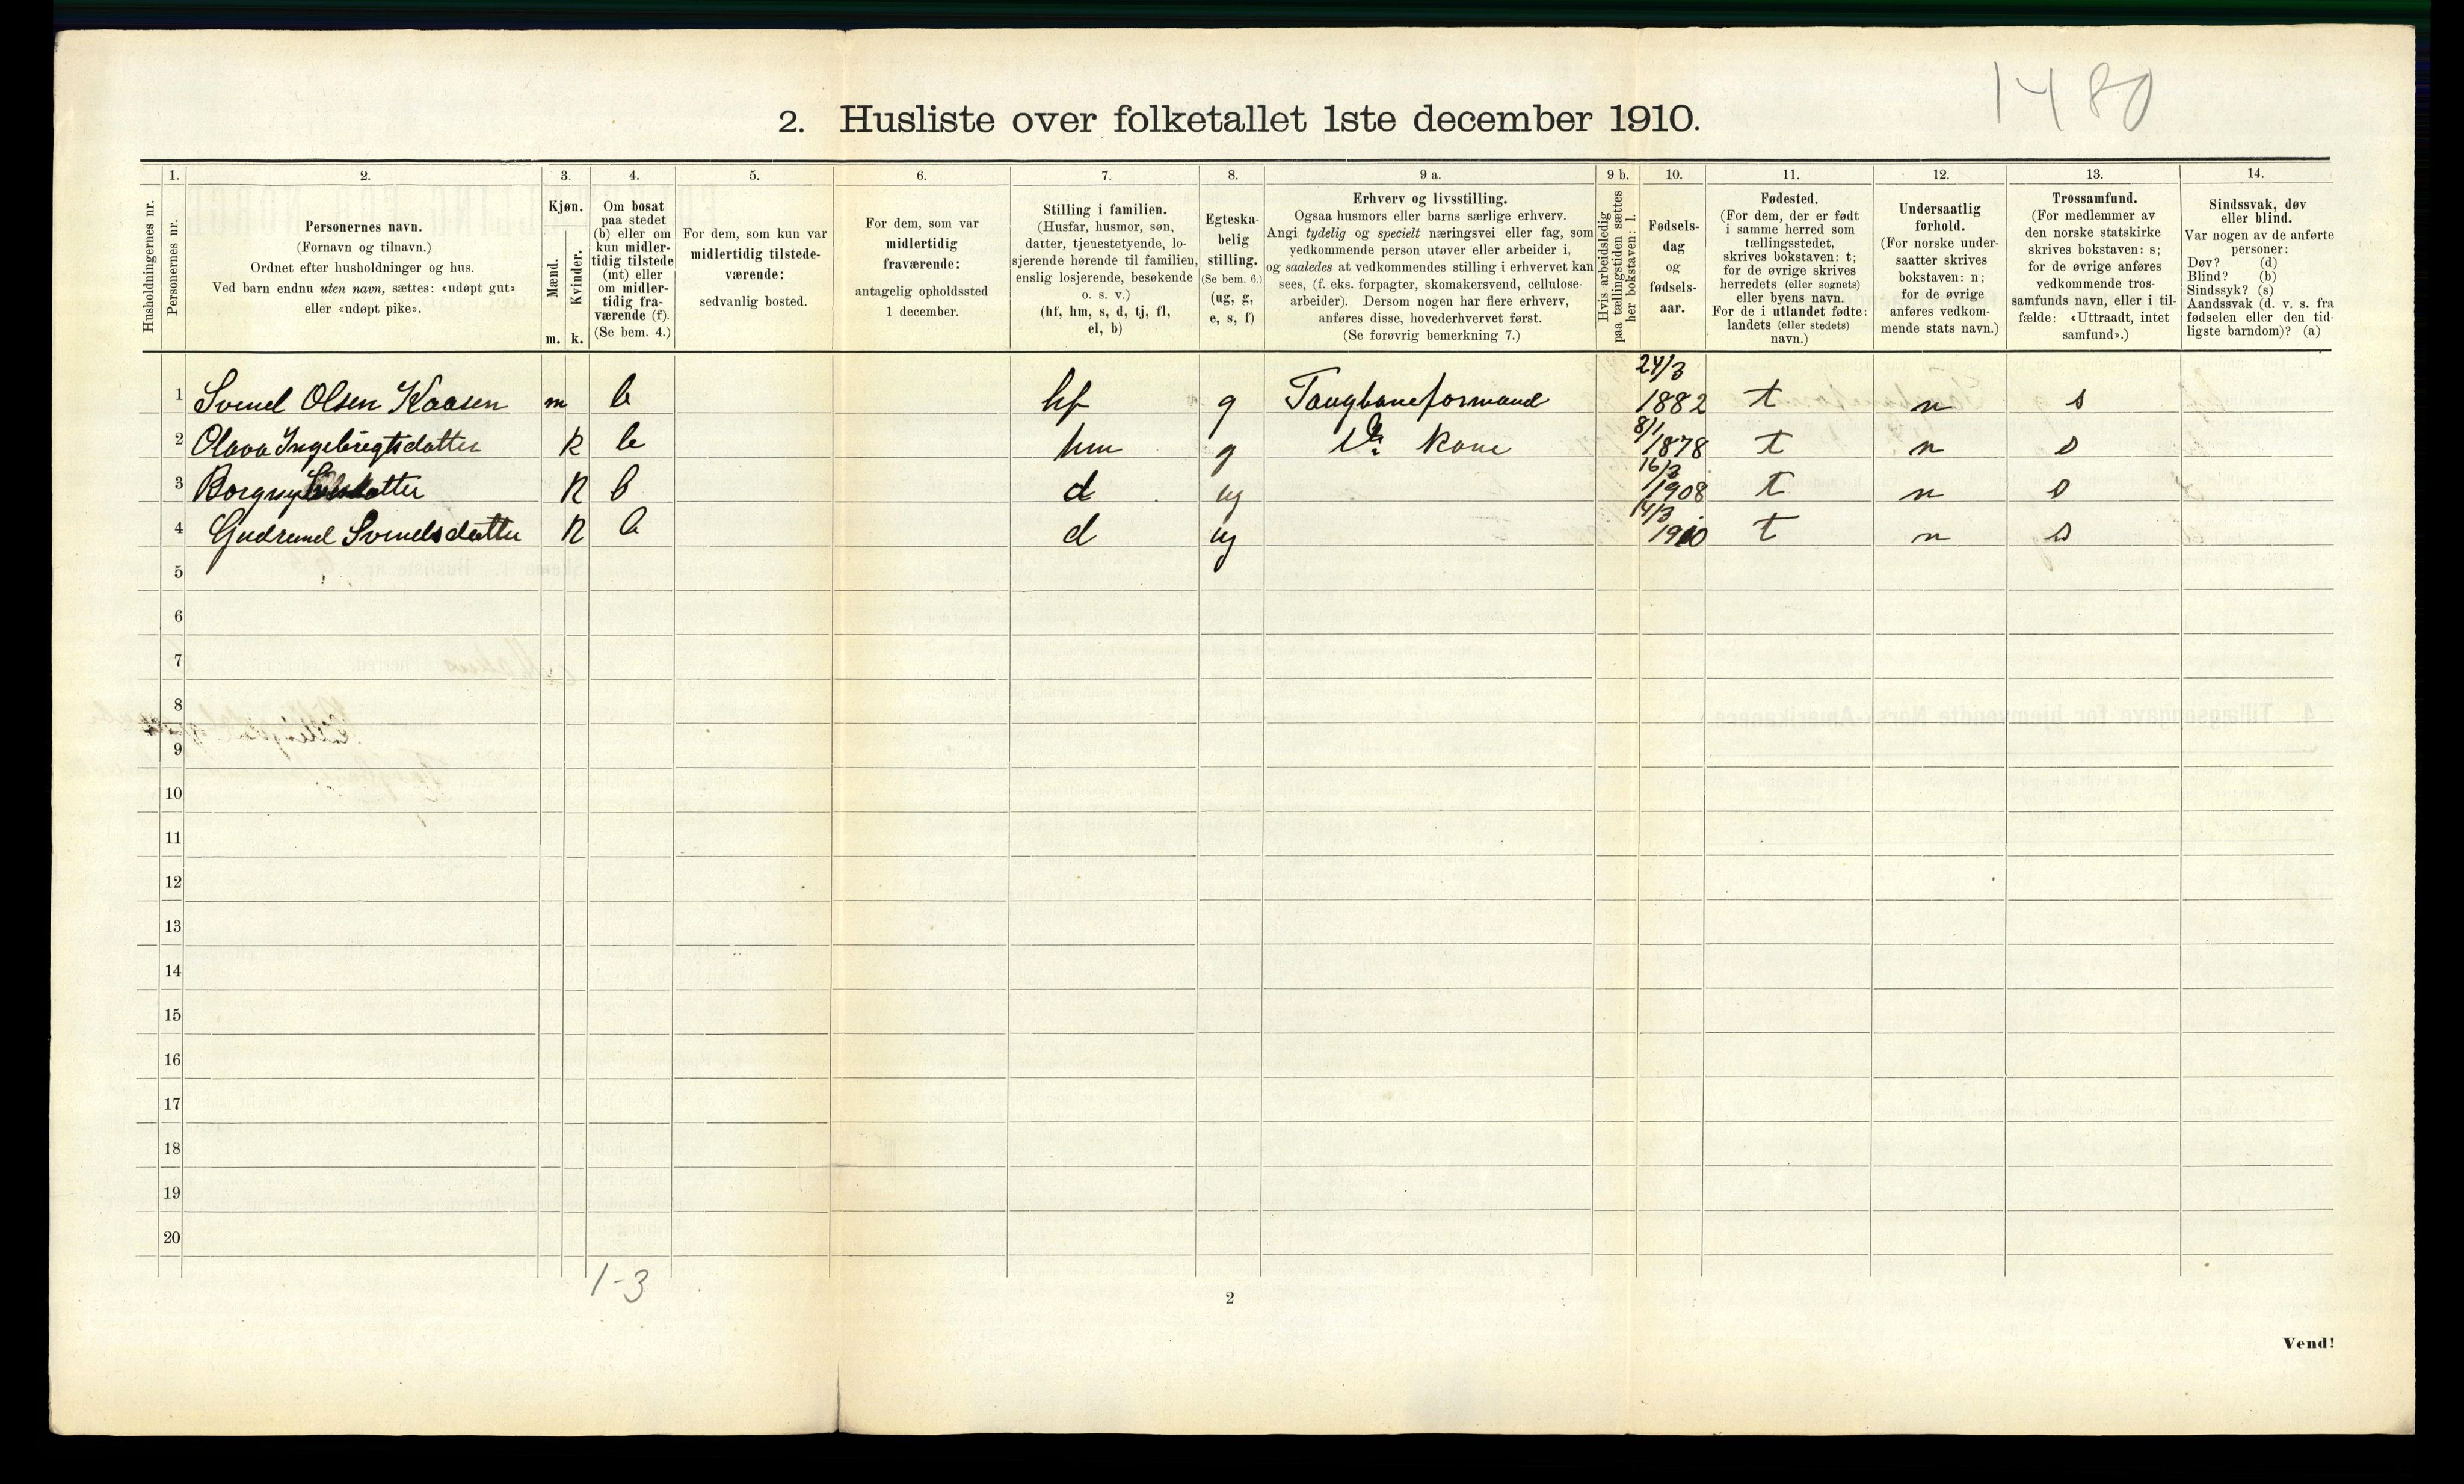 1480
2. Husliste over folketallet 1ste december 1910.
Husholdningernes nr.
1.
Personernes nr.
2.
Personernes navn.
(Fornavn og tilnavn.)
Ordnet efter husholdninger og hus.
Ved barn endnu uten navn, sættes: «udøpt gut»
eller «udøpt pike».
3.
Kjøn.
Mænd.
Kvinder.
m. k.
4.
Om bosat
paa stedet
(b) eller om
kun midler-
tidig tilstede
(mt) eller
om midler-
tidig fra-
værende (f).
(Se bem. 4.)
5.
For dem, som kun var
midlertidig tilstede-
værende:
sedvanlig bosted.
6.
For dem, som var
midlertidig
fraværende:
antagelig opholdssted
1 december.
7.
Stilling i familien.
(Husfar, husmor, søn,
datter, tjenestetyende, lo-
sjerende hørende til familien,
enslig losjerende, besøkende
o. s. v.)
(hf, hm, s, d, tj, fl,
el, b)
8.
Egteska-
belig
stilling.
(Se bem. 6.)
(ug, g,
e, s, f)
9 a.
Erhverv og livsstilling.
Ogsaa husmors eller barns særlige erhverv.
Angi tydelig og specielt næringsvei eller fag, som
vedkommende person utøver eller arbeider i,
og saaledes at vedkommendes stilling i erhvervet kan
sees, (f. eks. forpagter, skomakersvend, cellulose-
arbeider). Dersom nogen har flere erhverv,
anføres disse, hovederhvervet først.
(Se forøvrig bemerkning 7.)
9 b.
Hvis arbeidsledig
paa tællingstiden sættes
her bokstaven: l.
10.
Fødsels-
dag
og
fødsels-
aar.
11.
Fødested.
(For dem, der er født
i samme herred som
tællingsstedet,
skrives bokstaven: t;
for de øvrige skrives
herredets (eller sognets)
eller byens navn.
For de i utlandet fødte:
landets (eller stedets)
navn.)
12.
Undersaatlig
forhold.
(For norske under-
saatter skrives
bokstaven: n;
for de øvrige
anføres vedkom-
mende stats navn.)
13.
Trossamfund.
(For medlemmer av
den norske statskirke
skrives bokstaven: s;
for de øvrige anføres
vedkommende tros-
samfunds navn, eller i til-
fælde: «Uttraadt, intet
samfund».)
14.
Sindssvak, døv
eller blind.
Var nogen av de anførte
personer:
Døv? (d)
Blind? (b)
Sindssyk? (s)
Aandssvak (d. v. s. fra
fødselen eller den tid-
ligste barndom)? (a)
1 Svend Olsen Kaasen m b hf g Taugbaneformand 24/3 1882 t n s
2 Olava Ingebrigtsdatter k b hm g Do kone 8/1 1878 t n s
3 Borgny k b d ug 16/3 1908 t n s
4 Gudrund Svendsdatter k b d ug 14/3 1910 t n s
5
6
7
8
9
10
11
12
13
14
15
16
17
18
19
20
1-3
2
Vend!